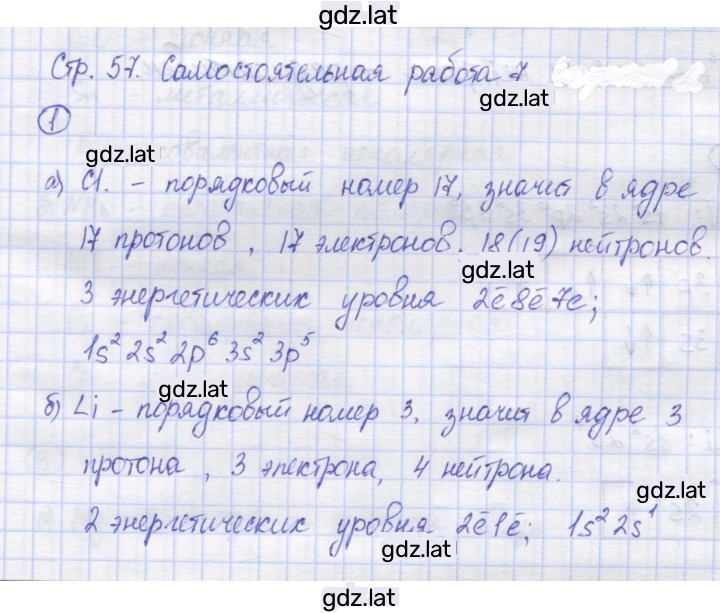 gdz.lat
Стр. 57. Самостоятельная работа 7
gdz.lat
1
gdz.lat
а) Cl. - порядковый номер 17, значит в ядре
17 протонов, 17 электронов. 18(19) нейтронов.
gdz.lat
3 энергетических уровня 2ē 8ē 7e;
1s² 2s² 2p⁶ 3s² 3p⁵
gdz.lat
б) Li - порядковый номер 3, значит в ядре 3
протона, 3 электрона, 4 нейтрона.
gdz.lat
2 энергетических уровня 2ē 1ē; 1s² 2s¹
gdz.lat
gdz.lat